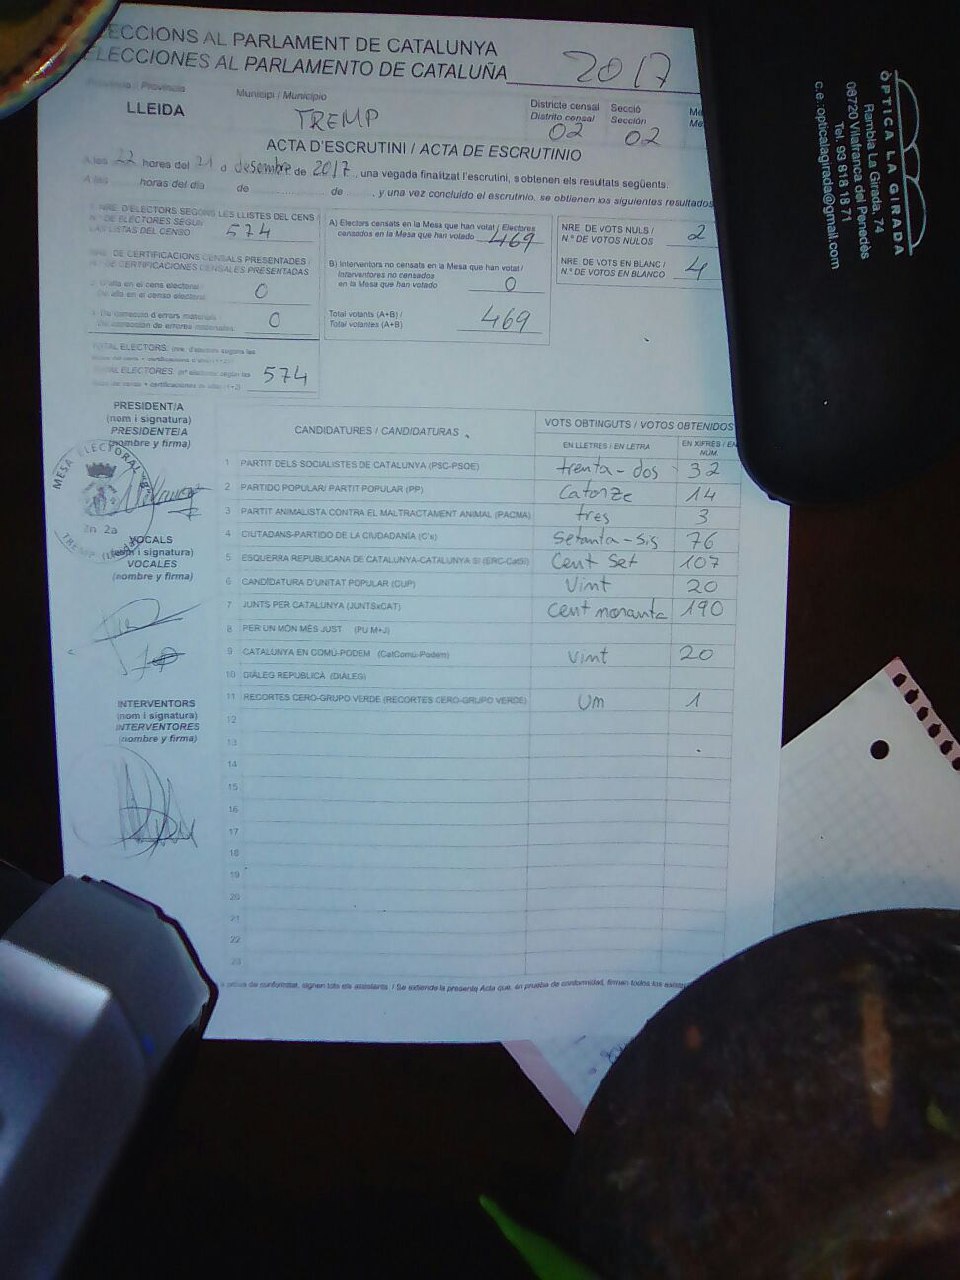 ECCIONS AL PARLAMENT DE CATALUNYA
ELECCIONES AL PARLAMENTO DE CATALUÑA 2017
Província / Provincia
LLEIDA
Municipi / Municipio
TREMP
Districte censal
Distrito censal
02
Secció
Sección
02
Me
Me
ACTA D'ESCRUTINI / ACTA DE ESCRUTINIO
A les 22 hores del 21 d desembre de 2017, una vegada finalitzat l'escrutini, s'obtenen els resultats següents:
A las hores del día de de , y una vez concluido el escrutinio, se obtienen los siguientes resultados
NRE. D'ELECTORS SEGONS LES LLISTES DEL CENS /
N.º DE ELECTORES SEGÚN
LAS LISTAS DEL CENSO 574
NRE. DE CERTIFICACIONS CENSALS PRESENTADES /
N.º DE CERTIFICACIONES CENSALES PRESENTADAS
D'alta en el cens electoral /
De alta en el censo electoral 0
De correcció d'errors materials /
De corrección de errores materiales 0
TOTAL ELECTORS:
TOTAL ELECTORES: 574
A) Electors censats en la Mesa que han votat / Electores
censados en la Mesa que han votado 469
B) Interventors no censats en la Mesa que han votat /
Interventores no censados
en la Mesa que han votado 0
Total votants (A+B) /
Total votantes (A+B) 469
NRE. DE VOTS NULS /
N.º DE VOTOS NULOS 2
NRE. DE VOTS EN BLANC /
N.º DE VOTOS EN BLANCO 4
PRESIDENT/A
(nom i signatura)
PRESIDENTE/A
(nombre y firma)
MESA ELECTORAL
2n 2a
TREMP (Lleida)
VOCALS
(nom i signatura)
VOCALES
(nombre y firma)
INTERVENTORS
(nom i signatura)
INTERVENTORES
(nombre y firma)
CANDIDATURES / CANDIDATURAS
VOTS OBTINGUTS / VOTOS OBTENIDOS
EN LLETRES / EN LETRA
EN XIFRES / EN
NÚM.
1 PARTIT DELS SOCIALISTES DE CATALUNYA (PSC-PSOE) trenta-dos 32
2 PARTIDO POPULAR/ PARTIT POPULAR (PP) Catorze 14
3 PARTIT ANIMALISTA CONTRA EL MALTRACTAMENT ANIMAL (PACMA) tres 3
4 CIUTADANS-PARTIDO DE LA CIUDADANÍA (C's) Setanta-sis 76
5 ESQUERRA REPUBLICANA DE CATALUNYA-CATALUNYA SÍ (ERC-CatSí) Cent Set 107
6 CANDIDATURA D'UNITAT POPULAR (CUP) Vint 20
7 JUNTS PER CATALUNYA (JUNTSxCAT) Cent noranta 190
8 PER UN MÓN MÉS JUST (PU M+J)
9 CATALUNYA EN COMÚ-PODEM (CatComú-Podem) Vint 20
10 DIÀLEG REPUBLICÀ (DIÀLEG)
11 RECORTES CERO-GRUPO VERDE (RECORTES CERO-GRUPO VERDE) Um 1
12
13
14
15
16
17
18
19
20
21
22
23
prova de conformitat, signen tots els assistents. / Se extiende la presente Acta que, en prueba de conformidad, firman todos los
ÒPTICA LA GIRADA
Rambla La Girada, 74
08720 Vilafranca del Penedès
Tel. 93 818 18 71
c.e.:opticalagirada@gmail.com